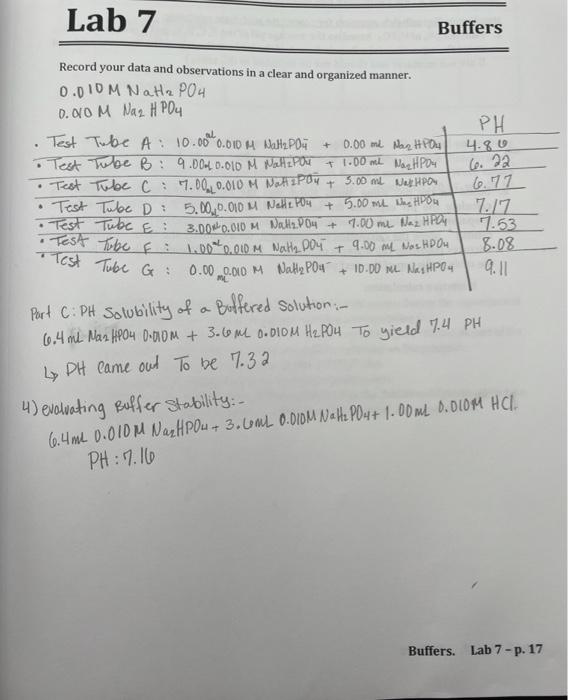 Lab 7
Buffers
Record your data and observations in a clear and organized manner.
0.010 M NaH2 PO4
0.010 M Na2 HPO4
PH
• Test Tube A : 10.00 mL 0.010 M NaH2PO4 + 0.00 mL Na2 HPO4 4.80
• Test Tube B : 9.00 mL 0.010 M NaH2PO4 + 1.00 mL Na2HPO4 6.22
• Test Tube C : 7.00 mL 0.010 M NaH2PO4 + 3.00 mL Na2HPO4 6.77
• Test Tube D : 5.00 mL 0.010 M NaH2PO4 + 5.00 mL Na2HPO4 7.17
• Test Tube E : 3.00 mL 0.010 M NaH2PO4 + 7.00 mL Na2HPO4 7.53
• Test Tube F : 1.00 mL 0.010 M NaH2PO4 + 9.00 mL Na2HPO4 8.08
• Test Tube G : 0.00 mL 0.010 M NaH2PO4 + 10.00 mL Na2HPO4 9.11
Part C: PH Solubility of a Buffered Solution:-
6.4 mL Na2HPO4 0.010M + 3.6 mL 0.010M H2PO4 To yield 7.4 PH
↳ PH Came out To be 7.32
4) evaluating Buffer Stability:-
6.4mL 0.010M Na2HPO4 + 3.6mL 0.010M NaH2PO4 + 1.00mL 0.010M HCl.
PH : 7.16
Buffers. Lab 7 – p. 17